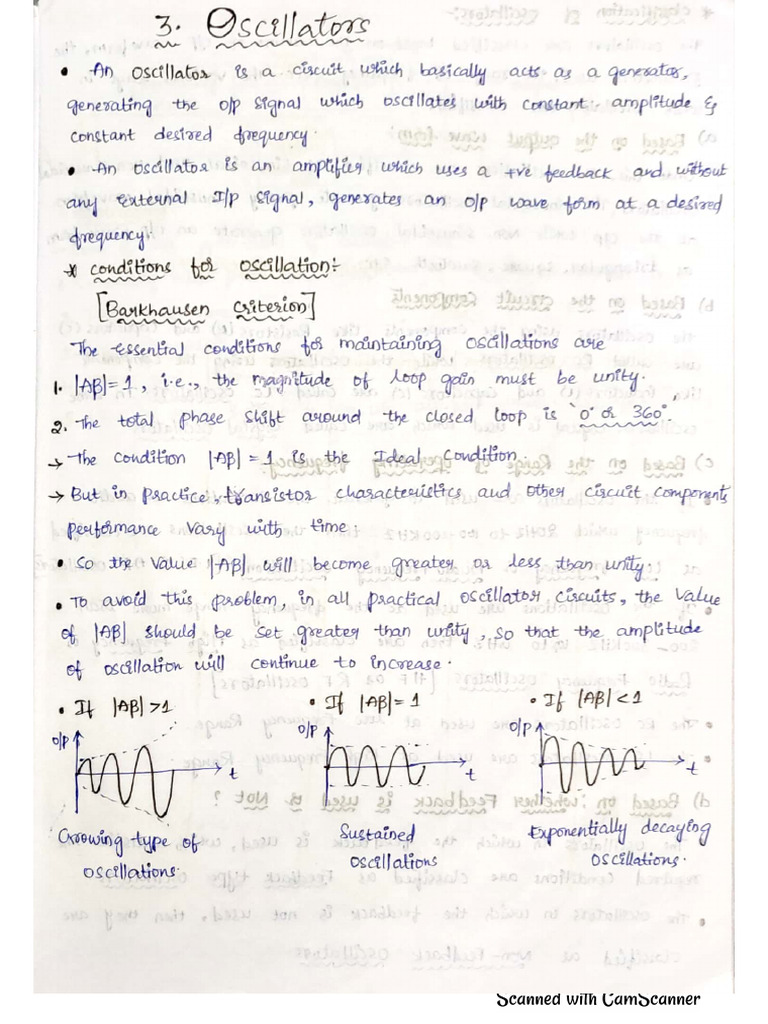 3. Oscillators
• An oscillator is a circuit which basically acts as a generator,
generating the o/p signal which oscillates with constant amplitude &
constant desired frequency.
• An oscillator is an amplifier, which uses a +ve feedback and without
any external I/p signal, generates an o/p wave form at a desired
frequency.
* conditions for oscillation:-
[Barkhausen criterion]
The essential conditions for maintaining oscillations are
1. |Aβ|=1, i.e., the magnitude of loop gain must be unity.
2. The total phase shift around the closed loop is '0' or 360°.
→ The condition |Aβ| = 1 is the Ideal condition.
→ But in practice, transistor characteristics and other circuit components
performance vary with time.
• So the value |Aβ| will become greater or less than unity.
• To avoid this problem, in all practical oscillator circuits, the value
of |Aβ| should be set greater than unity, so that the amplitude
of oscillation will continue to increase.
• If |Aβ| >1 • If |Aβ|= 1 • If |Aβ| < 1
o/p t o/p t o/p t
Growing type of oscillations.
Sustained oscillations
Exponentially decaying oscillations.
Scanned with CamScanner